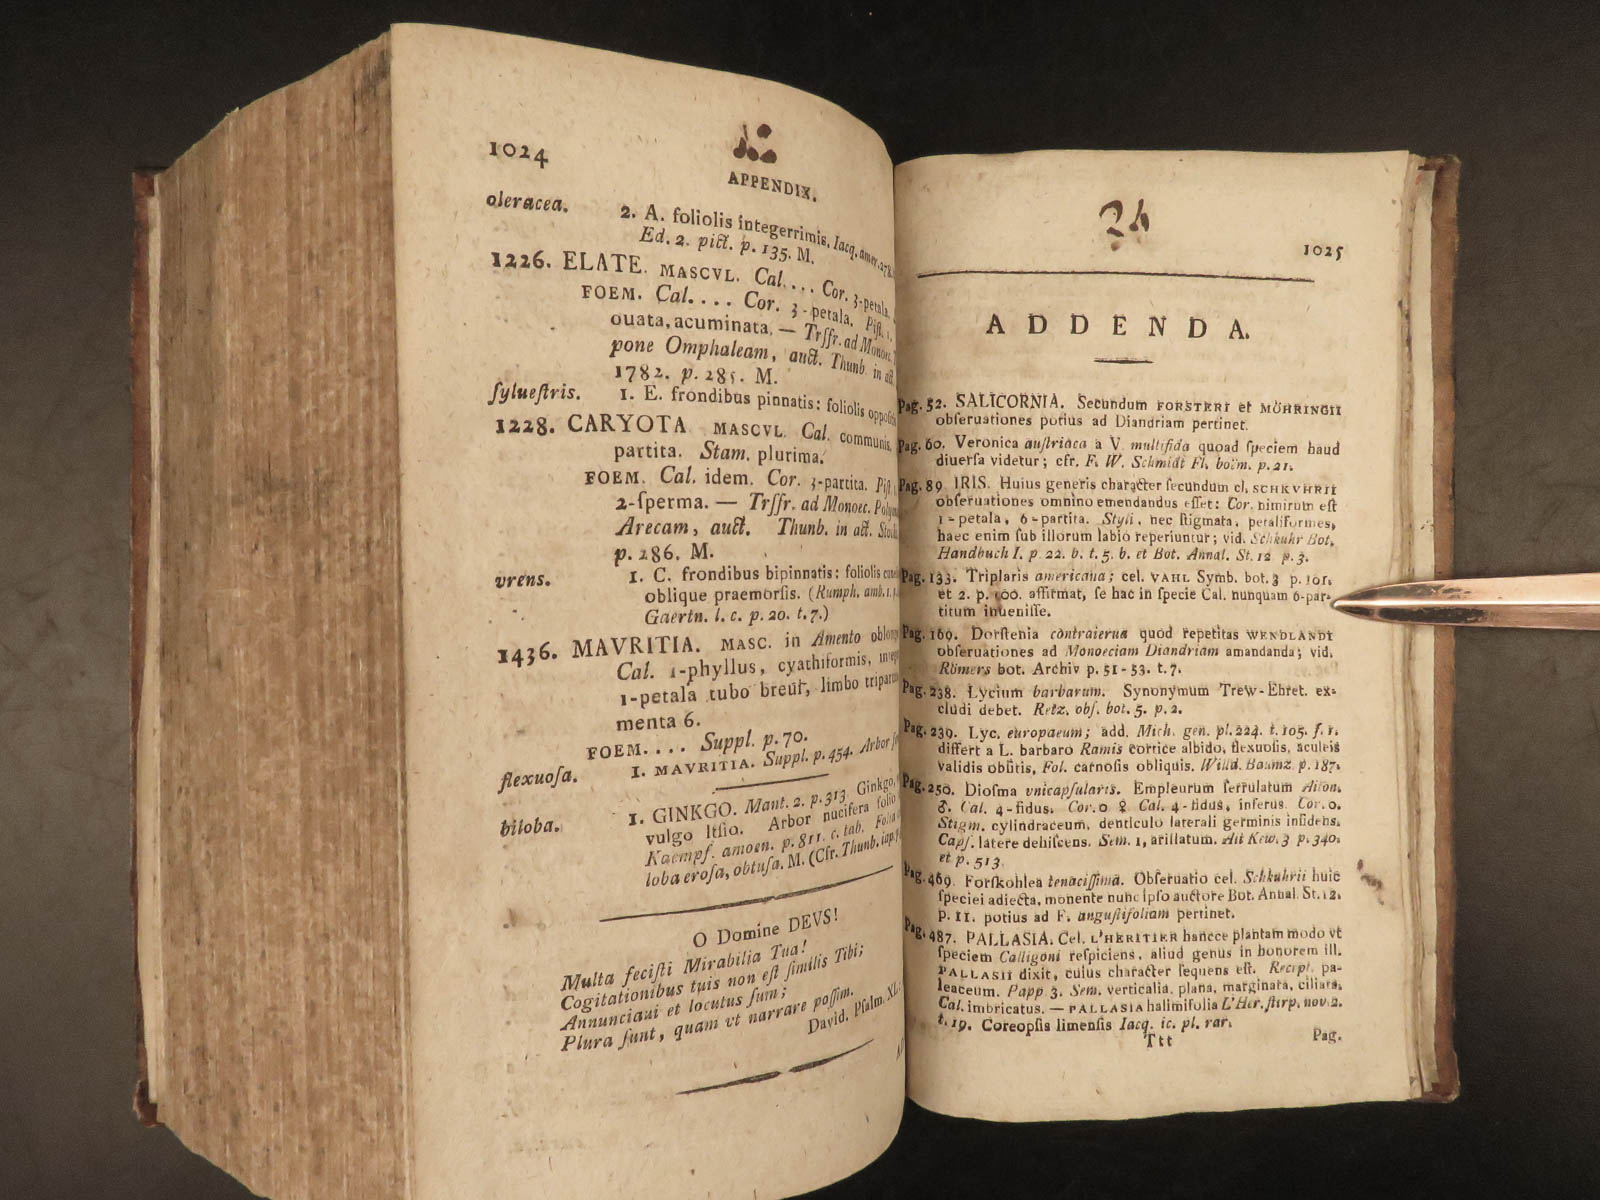 1024
APPENDIX.
oleracea. 2. A. foliolis integerrimis. Iacq. amer. 278.
Ed. 2. pict. p. 135. M.
1226. ELATE. MASCVL. Cal. . . . Cor. 3-petala.
FOEM. Cal. . . . Cor. 3-petala. Pist. 1.
ouata, acuminata. — Trſſr. ad Monoec.
pone Omphaleam, auct. Thunb. in act.
1782. p. 285. M.
ſylueſtris. 1. E. frondibus pinnatis: foliolis oppoſitis
1228. CARYOTA MASCVL. Cal. communis,
partita. Stam. plurima.
FOEM. Cal. idem. Cor. 3-partita. Piſt.
2-ſperma. — Trſſr. ad Monoec. Polyan
Arecam, auct. Thunb. in act. Stock
p. 286. M.
vrens. 1. C. frondibus bipinnatis: foliolis cune
oblique praemorſis. (Rumph. amb. 1.
Gaertn. l. c. p. 20. t. 7.)
1436. MAVRITIA. MASC. in Amento oblon
Cal. 1-phyllus, cyathiformis, integ
1-petala tubo breui, limbo tripartit
menta 6.
FOEM. . . . Suppl. p. 70.
flexuoſa. 1. MAVRITIA. Suppl. p. 454. Arbor
biloba. 1. GINKGO. Mant. 2. p. 313 Ginkgo,
vulgo Itſio. Arbor nucifera folio
Kaempf. amoen. p. 811. c. tab. Folia
loba eroſa, obtuſa. M. (Cfr. Thunb. iap.
O Domine DEVS!
Multa feciſti Mirabilia Tua!
Cogitationibus tuis non eſt ſimilis Tibi;
Annunciaui et locutus ſum;
Plura ſunt, quam vt narrare poſſim.
David. Pſalm. XL.
1025
ADDENDA.
Pag. 52. SALICORNIA. Secundum FORSTERI et MÖHRINGII
obſeruationes potius ad Diandriam pertinet.
Pag. 60. Veronica auſtriaca a V. multifida quoad ſpeciem haud
diuerſa videtur; cfr. F. W. Schmidt Fl. boëm. p. 21.
Pag. 89 IRIS. Huius generis character ſecundum cl. SCHKVHRII
obſeruationes omnino emendandus eſſet: Cor. nimirum eſt
1-petala, 6-partita. Styli, nec ſtigmata, petaliformes,
haec enim ſub illorum labio reperiuntur; vid. Schkuhr Bot.
Handbuch I. p. 22. b. t. 5. b. et Bot. Annal. St. 12 p. 3.
Pag. 133. Triplaris americana; cel. VAHL Symb. bot. 3 p. 101.
et 2. p. 100. affirmat, ſe hac in ſpecie Cal. nunquam 6-par-
titum inueniſſe.
Pag. 169. Dorſtenia contraierua quod repetitas WENDLANDI
obſeruationes ad Monoeciam Diandriam amandanda; vid.
Römers bot. Archiv p. 51-53. t. 7.
Pag. 238. Lycium barbarum. Synonymum Trew-Ehret. ex-
cludi debet. Retz. obſ. bot. 5. p. 2.
Pag. 239. Lyc. europaeum; add. Mich. gen. pl. 224. t. 105. f. 1.
differt a L. barbaro Ramis cortice albido, flexuoſis, aculeis
validis obſitis, Fol. carnoſis obliquis. Willd. Baumz. p. 187.
Pag. 250. Dioſma vnicapſularis. Empleurum ſerrulatum Aiton.
♂. Cal. 4-fidus. Cor. 0 ♀ Cal. 4-fidus, inferus. Cor. 0.
Stigm. cylindraceum, denticulo laterali germinis inſidens.
Capſ. latere dehiſcens. Sem. 1, arillatum. Ait Kew. 3 p. 340.
et p. 513.
Pag. 469. Forſkohlea tenaciſſima. Obſeruatio cel. Schkuhrii huic
ſpeciei adiecta, monente nunc ipſo auctore Bot. Annal. St. 12.
p. 11. potius ad F. anguſtifoliam pertinet.
Pag. 487. PALLASIA. Cel. L'HERITIER hancce plantam modo vt
ſpeciem Calligoni reſpiciens, aliud genus in honorem ill.
PALLASII dixit, cuius character ſequens eſt. Recept. pa-
leaceum. Papp 3. Sem. verticalia, plana, marginata, ciliata,
Cal. imbricatus. — PALLASIA halimifolia L'Her. ſtirp. nov. 2.
t. 19. Coreopſis limenſis Iacq. ic. pl. rar.
Ttt Pag.